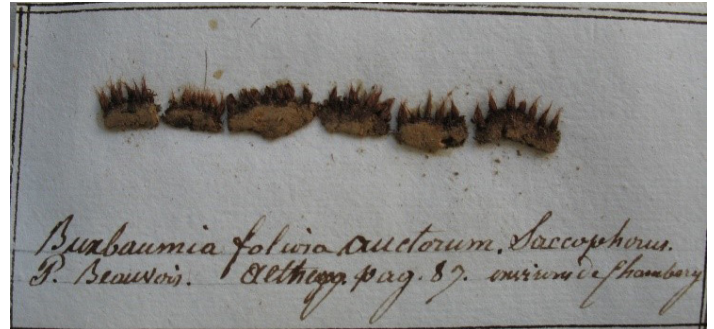 Buxbaumia foliosa auctorum. Saccophorus.
P. Beauvois. pag. 87. environs de Chambery